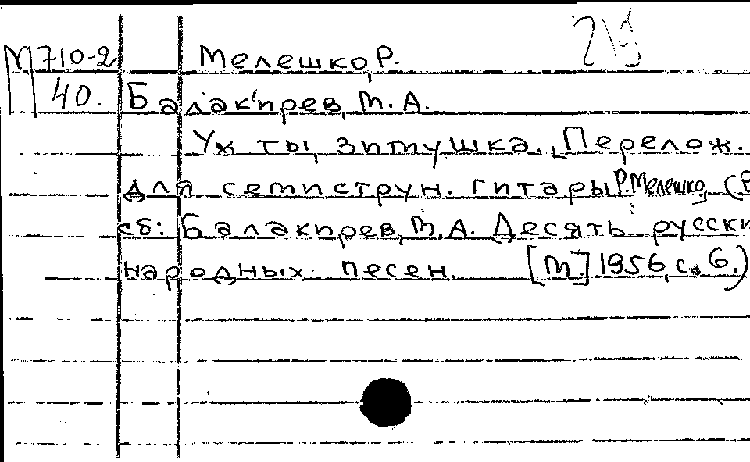 М710-2 Мелешко, Р.
40. Балакирев, М. А.
Уж ты, зимушка. Перелож.
для семиструн. гитары Р. Мелешко. (В
сб: Балакирев, М. А. Десять русски
народных песен. [М.] 1956, с. 6.)